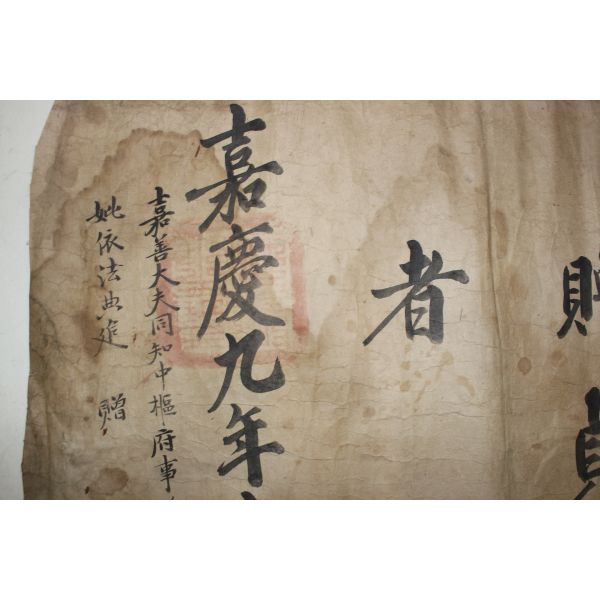 貞
者
嘉慶九年
嘉善大夫同知中樞府事
妣依法典追 贈